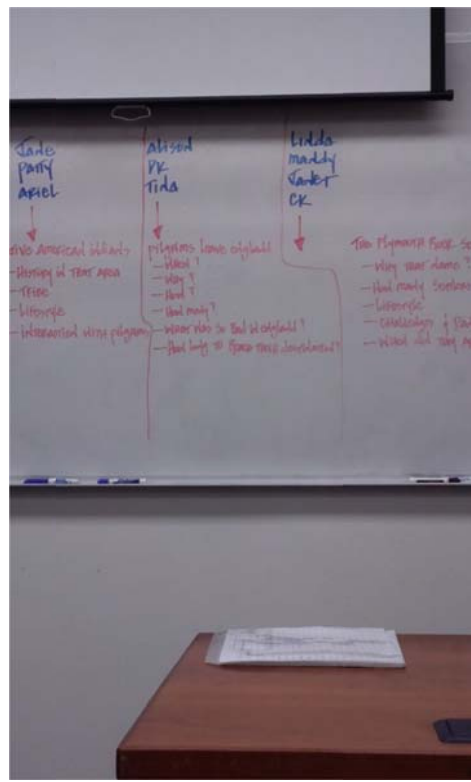 Jane
Patty
Ariel
tive American Indians
- History in that area
- Tribe
- Lifestyle
- Interaction with pilgrims
Alison
PK
Tina
Pilgrims leave England
- When?
- Why?
- How?
- How many?
- What was so bad in England?
- How long to
Linda
Maddy
Janet
CK
The Plymouth Rock Se
- Why that name?
- How many
- Lifestyle
- Challenges &
- When did they